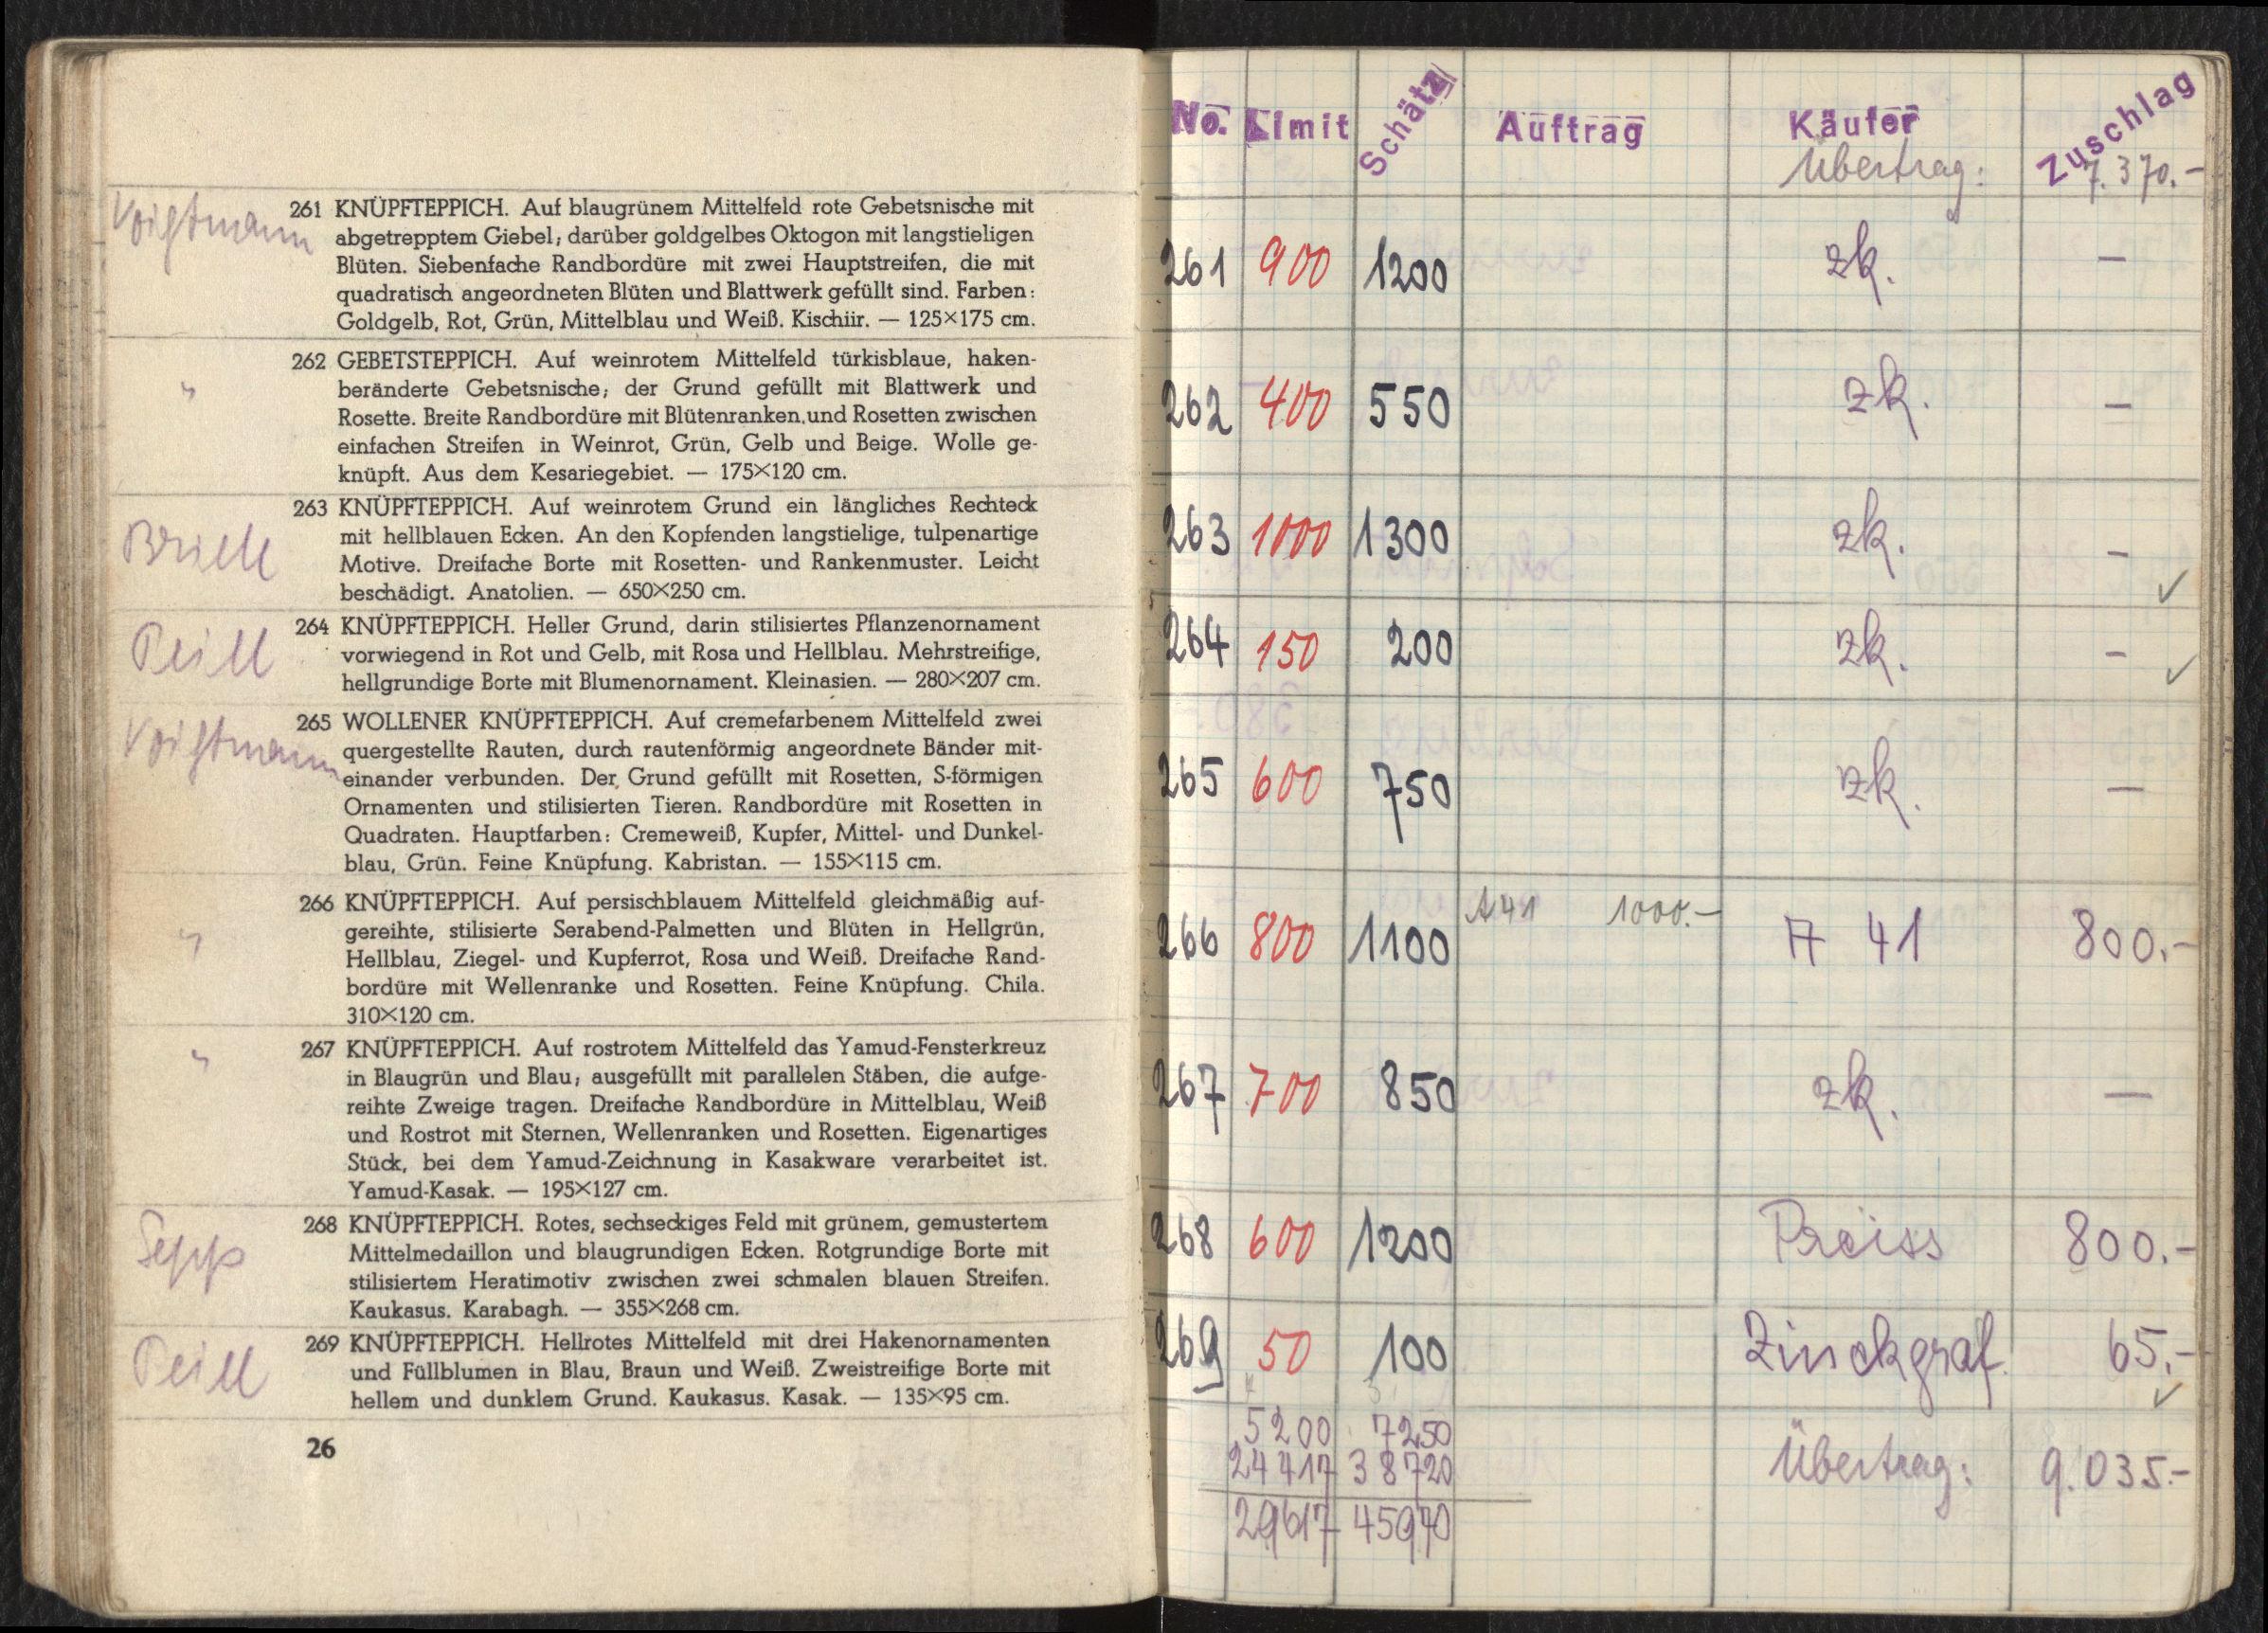 Voigtmann
261 KNÜPFTEPPICH. Auf blaugrünem Mittelfeld rote Gebetsnische mit
abgetrepptem Giebel; darüber goldgelbes Oktogon mit langstieligen
Blüten. Siebenfache Randbordüre mit zwei Hauptstreifen, die mit
quadratisch angeordneten Blüten und Blattwerk gefüllt sind. Farben:
Goldgelb, Rot, Grün, Mittelblau und Weiß. Kischiir. — 125×175 cm.
"
262 GEBETSTEPPICH. Auf weinrotem Mittelfeld türkisblaue, haken-
beränderte Gebetsnische; der Grund gefüllt mit Blattwerk und
Rosette. Breite Randbordüre mit Blütenranken und Rosetten zwischen
einfachen Streifen in Weinrot, Grün, Gelb und Beige. Wolle ge-
knüpft. Aus dem Kesariegebiet. — 175×120 cm.
263 KNÜPFTEPPICH. Auf weinrotem Grund ein längliches Rechteck
mit hellblauen Ecken. An den Kopfenden langstielige, tulpenartige
Motive. Dreifache Borte mit Rosetten- und Rankenmuster. Leicht
beschädigt. Anatolien. — 650×250 cm.
Peill
264 KNÜPFTEPPICH. Heller Grund, darin stilisiertes Pflanzenornament
vorwiegend in Rot und Gelb, mit Rosa und Hellblau. Mehrstreifige,
hellgrundige Borte mit Blumenornament. Kleinasien. — 280×207 cm.
Voigtmann
265 WOLLENER KNÜPFTEPPICH. Auf cremefarbenem Mittelfeld zwei
quergestellte Rauten, durch rautenförmig angeordnete Bänder mit-
einander verbunden. Der Grund gefüllt mit Rosetten, S-förmigen
Ornamenten und stilisierten Tieren. Randbordüre mit Rosetten in
Quadraten. Hauptfarben: Cremeweiß, Kupfer, Mittel- und Dunkel-
blau, Grün. Feine Knüpfung. Kabristan. — 155×115 cm.
"
266 KNÜPFTEPPICH. Auf persischblauem Mittelfeld gleichmäßig auf-
gereihte, stilisierte Serabend-Palmetten und Blüten in Hellgrün,
Hellblau, Ziegel- und Kupferrot, Rosa und Weiß. Dreifache Rand-
bordüre mit Wellenranke und Rosetten. Feine Knüpfung. Chila.
310×120 cm.
"
267 KNÜPFTEPPICH. Auf rostrotem Mittelfeld das Yamud-Fensterkreuz
in Blaugrün und Blau; ausgefüllt mit parallelen Stäben, die aufge-
reihte Zweige tragen. Dreifache Randbordüre in Mittelblau, Weiß
und Rostrot mit Sternen, Wellenranken und Rosetten. Eigenartiges
Stück, bei dem Yamud-Zeichnung in Kasakware verarbeitet ist.
Yamud-Kasak. — 195×127 cm.
Sepp
268 KNÜPFTEPPICH. Rotes, sechseckiges Feld mit grünem, gemustertem
Mittelmedaillon und blaugrundigen Ecken. Rotgrundige Borte mit
stilisiertem Heratimotiv zwischen zwei schmalen blauen Streifen.
Kaukasus. Karabagh. — 355×268 cm.
Peill
269 KNÜPFTEPPICH. Hellrotes Mittelfeld mit drei Hakenornamenten
und Füllblumen in Blau, Braun und Weiß. Zweistreifige Borte mit
hellem und dunklem Grund. Kaukasus. Kasak. — 135×95 cm.
26
No. Limit Schätz Auftrag Käufer Zuschlag
Übertrag: 7.370.-
261 900 1200 zk. —
262 400 550 zk. —
263 1000 1300 zk. — ✓
264 150 200 zk. — ✓
265 600 750 zk. —
266 800 1100 A 41 1000.- A 41 800.-
267 700 850 zk. —
268 600 1200 Preiss 800.-
269 50 100 Zinckgraf 65.- ✓
5200 7250
24417 38720 Übertrag: 9.035.-
29617 45970